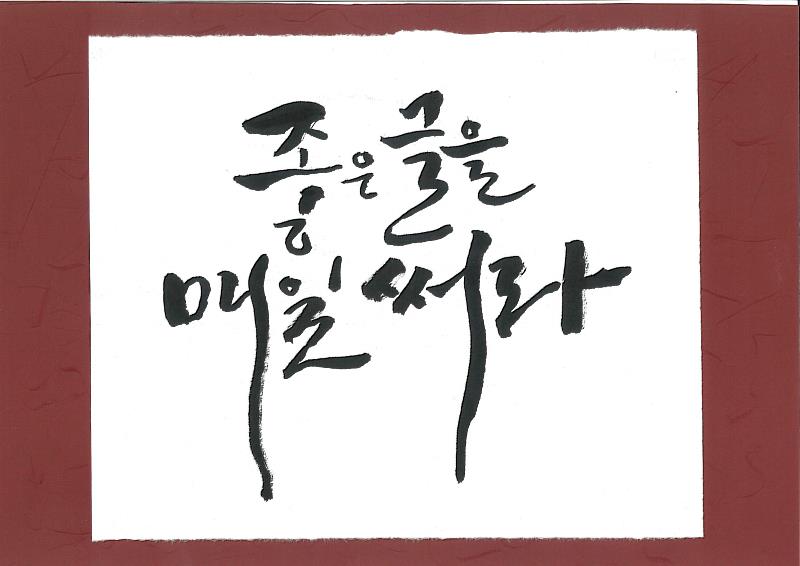 좋은 글을
매일 써라